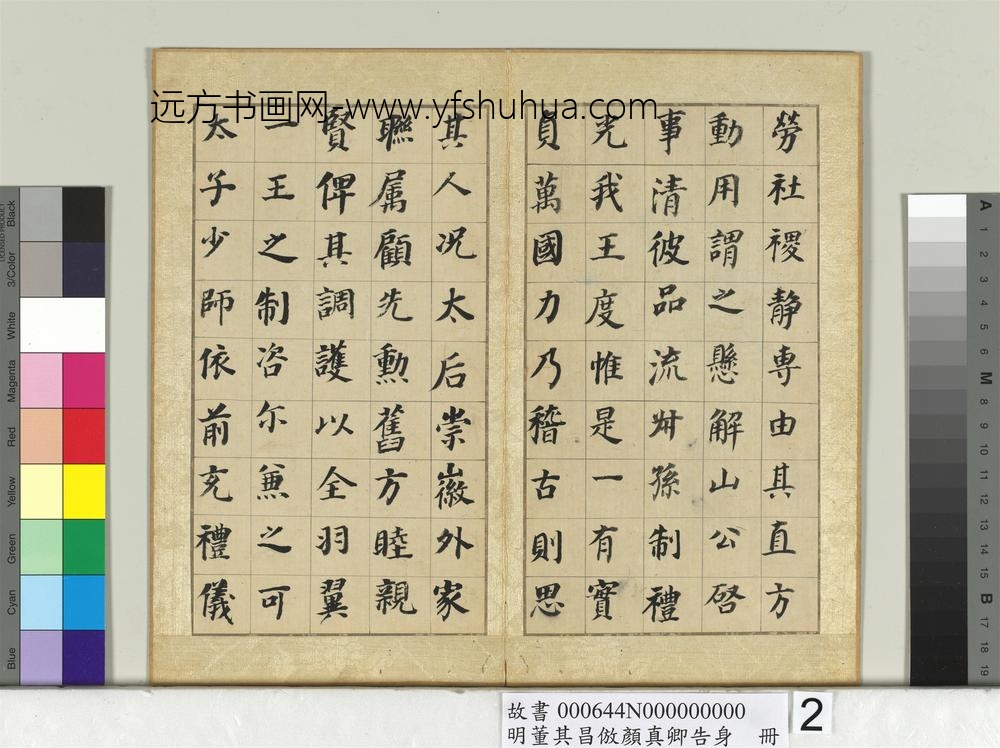 远方书画网-www.yfshuhua.com
勞社稷靜專由其直方
動用謂之懸解山公啓
事清彼品流叔孫制禮
光我王度惟是一有實
貞萬國力乃稽古則思
其人况太后崇徽外家
聯属顧先勲舊方睦親
賢俾其調護以全羽翼
一王之制咨尔兼之可
太子少師依前充禮儀
故書 000644N000000000
明董其昌倣顏真卿告身 冊
2
Black
3/Color
White
Magenta
Red
Yellow
Green
Cyan
Blue
A
1
2
3
4
5
6
M
8
9
10
11
12
13
14
15
B
17
18
19